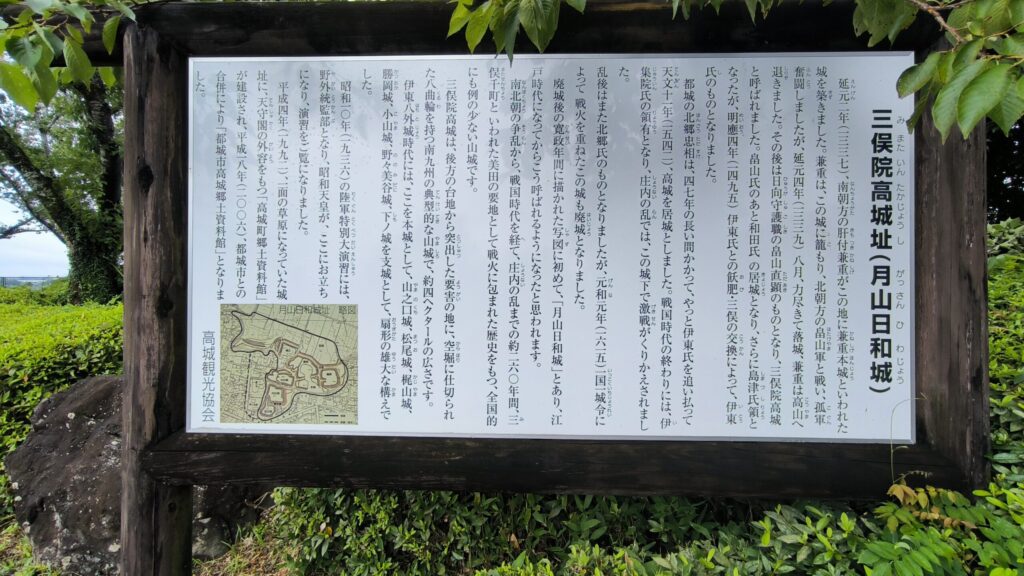 三俣院高城址（月山日和城）
みまたいんたかじょうし　がっさんひわじょう
延元二年（一三三七）、南朝方の肝付兼重がこの地に兼重本城といわれた
城を築きました。兼重は、この城に籠もり、北朝方の畠山軍と戦い、孤軍
奮闘しましたが、延元四年（一三三九）八月、力尽きて落城、兼重は高山へ
退きました。その後は日向守護職の畠山直顕のものとなり、三俣院高城
と呼ばれました。畠山氏のあと和田氏の居城となり、さらに島津氏領と
なったが、明應四年（一四九五）伊東氏との飫肥・三俣の交換によって、伊東
氏のものとなりました。
都城の北郷忠相は、四七年の長い間かかって、やっと伊東氏を追い払って
天文十一年（一五四二）、高城を居城としました。戦国時代の終わりには、伊
集院氏の領有となり、庄内の乱では、この城下で激戦がくりかえされまし
た。
乱後はまた北郷氏のものとなりましたが、元和元年（一六一五）一国一城令に
よって 戦火を重ねたこの城も廃城となりました。
廃城後の寛政年間に描かれた写図に初めて、「月山日和城」とあり、江
戸時代になってからこう呼ばれるようになったと思われます。
南北朝の争乱から、戦国時代を経て、庄内の乱までの約二六〇年間、三
俣千町といわれた美田の要地として戦火に包まれた歴史をもつ、全国的
にも例の少ない山城です。
三俣院高城は、後方の台地から突出した要害の地に、空堀に仕切られ
た八曲輪を持つ南九州の典型的な山城で、約四ヘクタールの広さです。
伊東八外城時代には、ここを本城として、山之口城、松尾城、梶山城、
勝岡城、小山城、野々美谷城、下ノ城を支城として、扇形の雄大な構えで
した。
昭和一〇年（一九三六）の陸軍特別大演習には、
野外統監部となり、昭和天皇が、ここにお立ち
になり、演習をご覧になりました。
平成四年（一九九二）、一面の草原となっていた城
址に、天守閣の外容をもつ「高城町郷土資料館」
が建設され、平成一八年（二〇〇六）都城市との
合併により「都城市高城郷土資料館」となりま
した。
月山日和城址　略図
高城観光協会